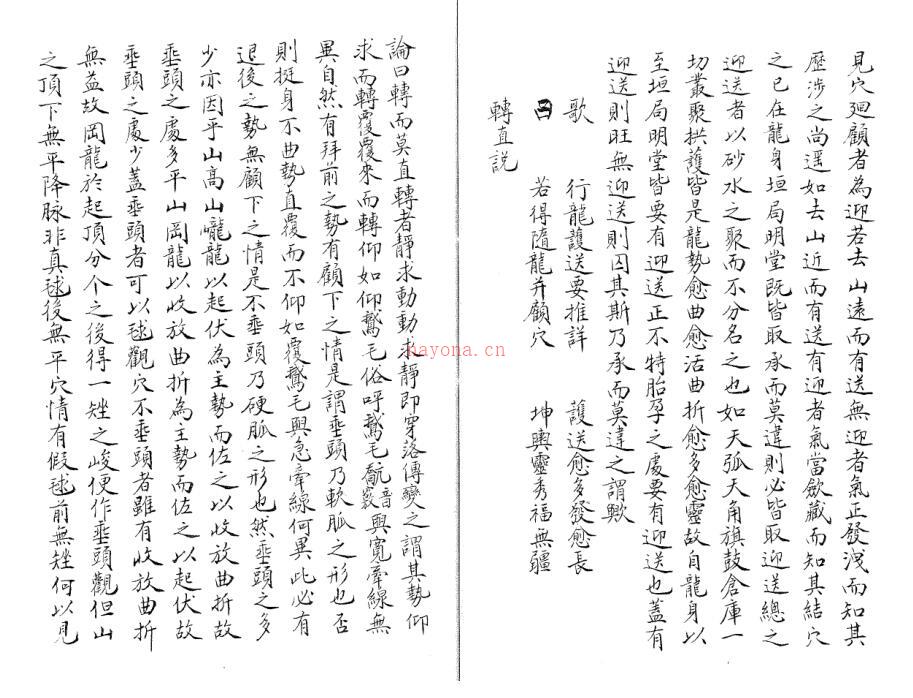 見穴廻顧者為迎若去山遠而有送無迎者氣正發洩而知其
歷涉之尚遥如去山近而有送有迎者氣當歛藏而知其結穴
之已在龍身垣局明堂既皆取承而莫違則必皆取迎送總之
迎送者以砂水之聚而不分名之也如天弧天角旗鼓倉庫一
切叢聚拱護皆是龍勢愈曲愈活曲折愈多愈靈故自龍身以
至垣局明堂皆要有迎送正不特胎孕之處要有迎送也蓋有
迎送則旺無迎送則囚其斯乃承而莫違之謂歟
歌 行龍護送要推詳 護送愈多發愈長
曰 若得隨龍并顧穴 坤輿靈秀福無疆
轉直説
論曰轉而莫直轉者靜求動動求靜即穿落傳變之謂其勢仰
求而轉覆覆來而轉仰如仰鵞毛俗呼鵞毛翻音裦與寬牽線無
異自然有拜前之勢有顧下之情是謂垂頭乃軟脈之形也否
則挺身不曲勢直覆而不仰如覆鵞毛與急牽線何異此必有
退後之勢無顧下之情是不垂頭乃硬脈之形也然垂頭之多
少亦因乎山高山巄龍以起伏為主勢而佐之以收放曲折故
垂頭之處多平山岡龍以收放曲折為主勢而佐之以起伏故
垂頭之處少蓋垂頭者可以毬觀穴不垂頭者雖有收放曲折
無益故岡龍於起頂分个之後得一矬之峻便作垂頭觀但山
之頂下無平降脉非真毬後無平穴情有假毬前無矬何以見
hayona.cn